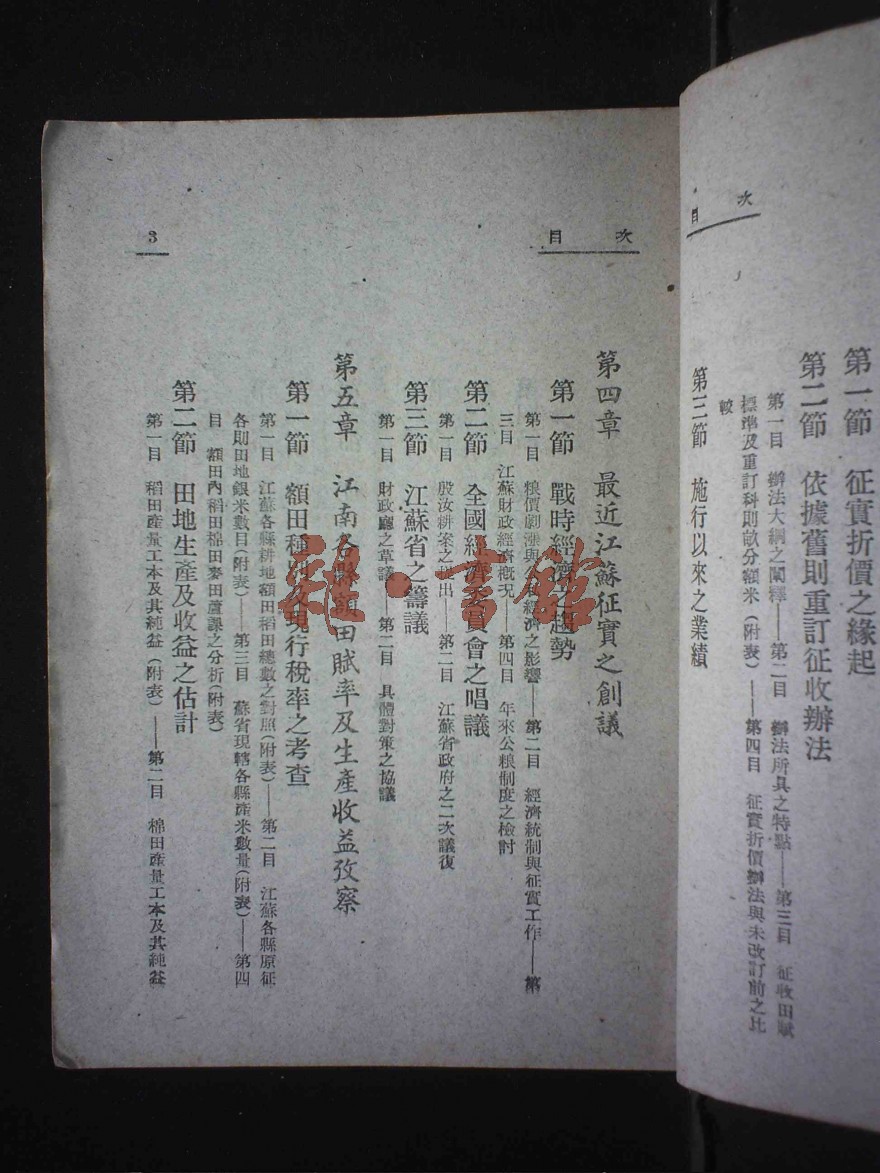 目 次
第一節 征實折價之緣起
第二節 依據舊則重訂征收辦法
第一目 辦法大綱之闡釋——第二目 辦法所具之特點——第三目 征收田賦
標準及重訂科則畝分額米(附表)——第四目 征實折價辦法與未改訂前之比
較
第三節 施行以來之業績
目 次
第四章 最近江蘇征實之創議
第一節 戰時經濟之趨勢
第一目 粮價劇漲與 經濟之影響——第二目 經濟統制與征實工作——第
三目 江蘇財政經濟概況——第四目 年來公粮制度之檢討
第二節 全國經濟委員會之唱議
第一目 殷汝耕案之提出——第二目 江蘇省政府之二次議復
第三節 江蘇省之籌議
第一目 財政廳之草議——第二目 具體對策之協議
第五章 江南各縣額田賦率及生產收益攷察
第一節 額田種別及現行稅率之考查
第一目 江蘇各縣耕地額田稻田總數之對照(附表)——第二目 江蘇各縣原征
各則田地銀米數目(附表)——第三目 蘇省現轄各縣產米數量(附表)——第四
目 額田內稻田棉田麥田蘆課之分析(附表)
第二節 田地生產及收益之估計
第一目 稻田產量工本及其純益(附表)——第二目 棉田產量工本及其純益
3
雜·書館